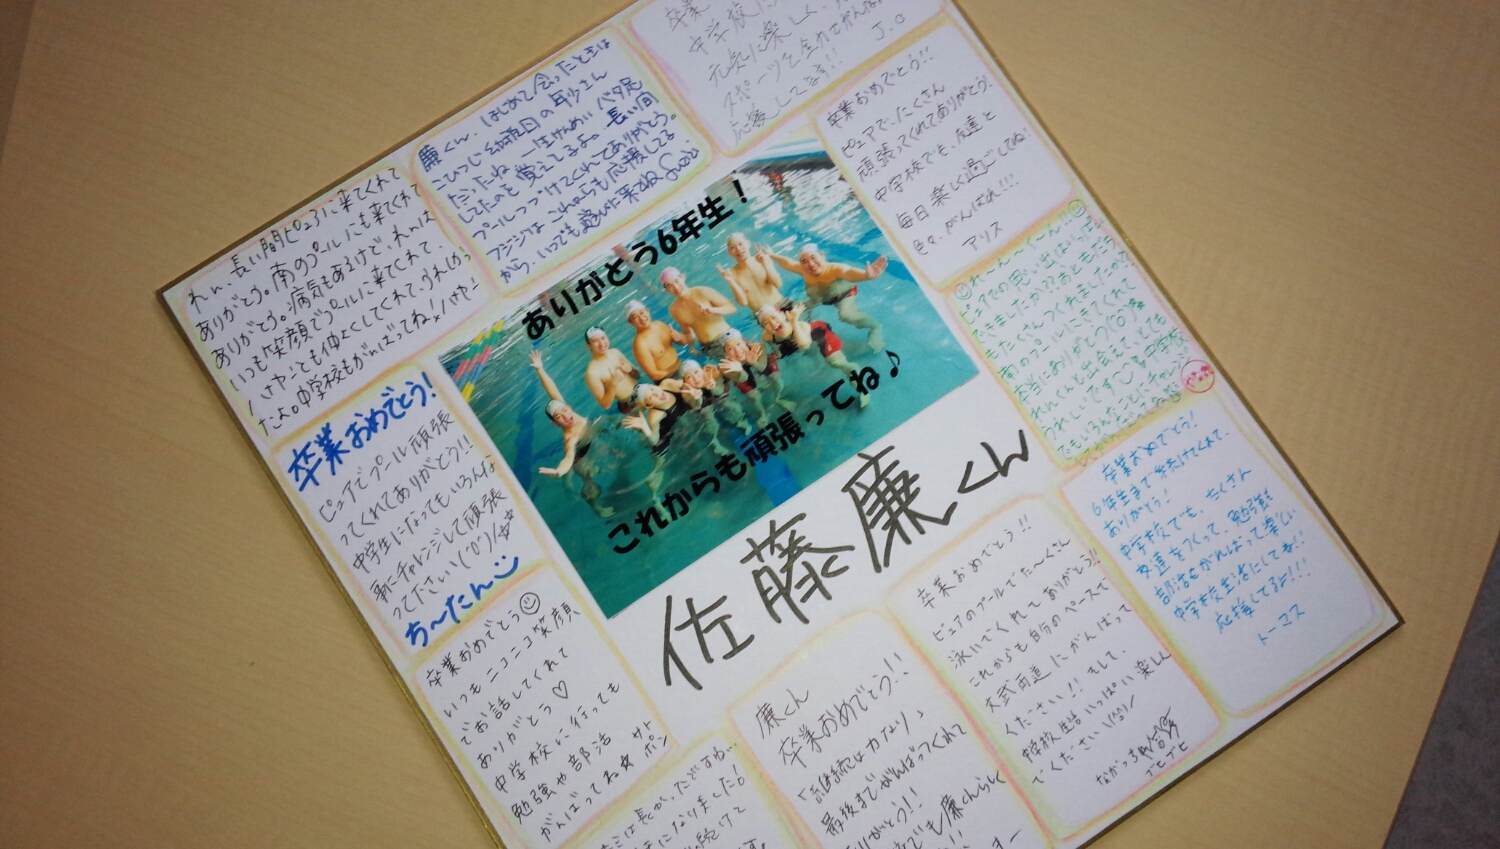 卒業
中学校に
元気に楽しく
スポーツを全力でがんば
応援してます!!
J.O
廉くん、はじめて会ったときは
こひつじ幼稚園の年少さん
だったね 一生けんめい バタ足
してたのを覚えてるよ。長い間
プールつづけてくれてありがとう。
フジジは これからも応援してる
から、いつでも遊びに来てね
れん、長い間ピュアに来てくれて
ありがとう。南のプールにも来てくれて
ありがとう。病気もあるけど、れんは
いつも笑顔でプールに来てくれて、
とも仲よくしてくれて、うれしかっ
たよ。中学校もがんばってね
卒業おめでとう!!
ピュアで、たくさん
頑張ってくれてありがとう!
中学校でも、友達と
毎日楽しく過ごしてね!
色々、がんばれ!!!
アリス
ありがとう6年生!
これからも頑張ってね♪
佐藤廉くん
れ〜ん〜く〜ん!!
ピュアでの思い出はいっぱい
できましたか??
もたくさんつくれましたか?
南のプールにきてくれて
本当にありがとう(^o^)
れんくんと出会えてとても
うれしいです 中学校
でもいろんなことにチャレンジ
卒業おめでとう!
ピュアでプール頑張
ってくれてありがとう!!
中学生になってもいろんな
事にチャレンジして頑張
ってださい!(^o^)/☆
ち〜たん
卒業おめでとう!
6年生まで続けてくれて、
ありがとう!
中学校でも、たくさん
友達をつくって、勉強
部活もがんばって楽しい
中学校生活にしてね!!
応援してるよ!!!
トーマス
卒業おめでとう
いつもニコニコ笑顔、
でお話してくれて
ありがとう♡
中学校に行っても
勉強や部活
がんばってね☆
サトポン
卒業おめでとう!!
ピュアのプールでた〜くさん
泳いでくれてありがとう!!
これからも自分のペースで
文武両道にがんばって
ください!! そして、
中学校生活いっぱい楽しん
でください(^^)/
廉くん
卒業おめでとう!!
「継続は力なり」
最後までがんばってくれて
ありがとう!!
でも廉くんらしく
は長かったですね…
になりました
続けて